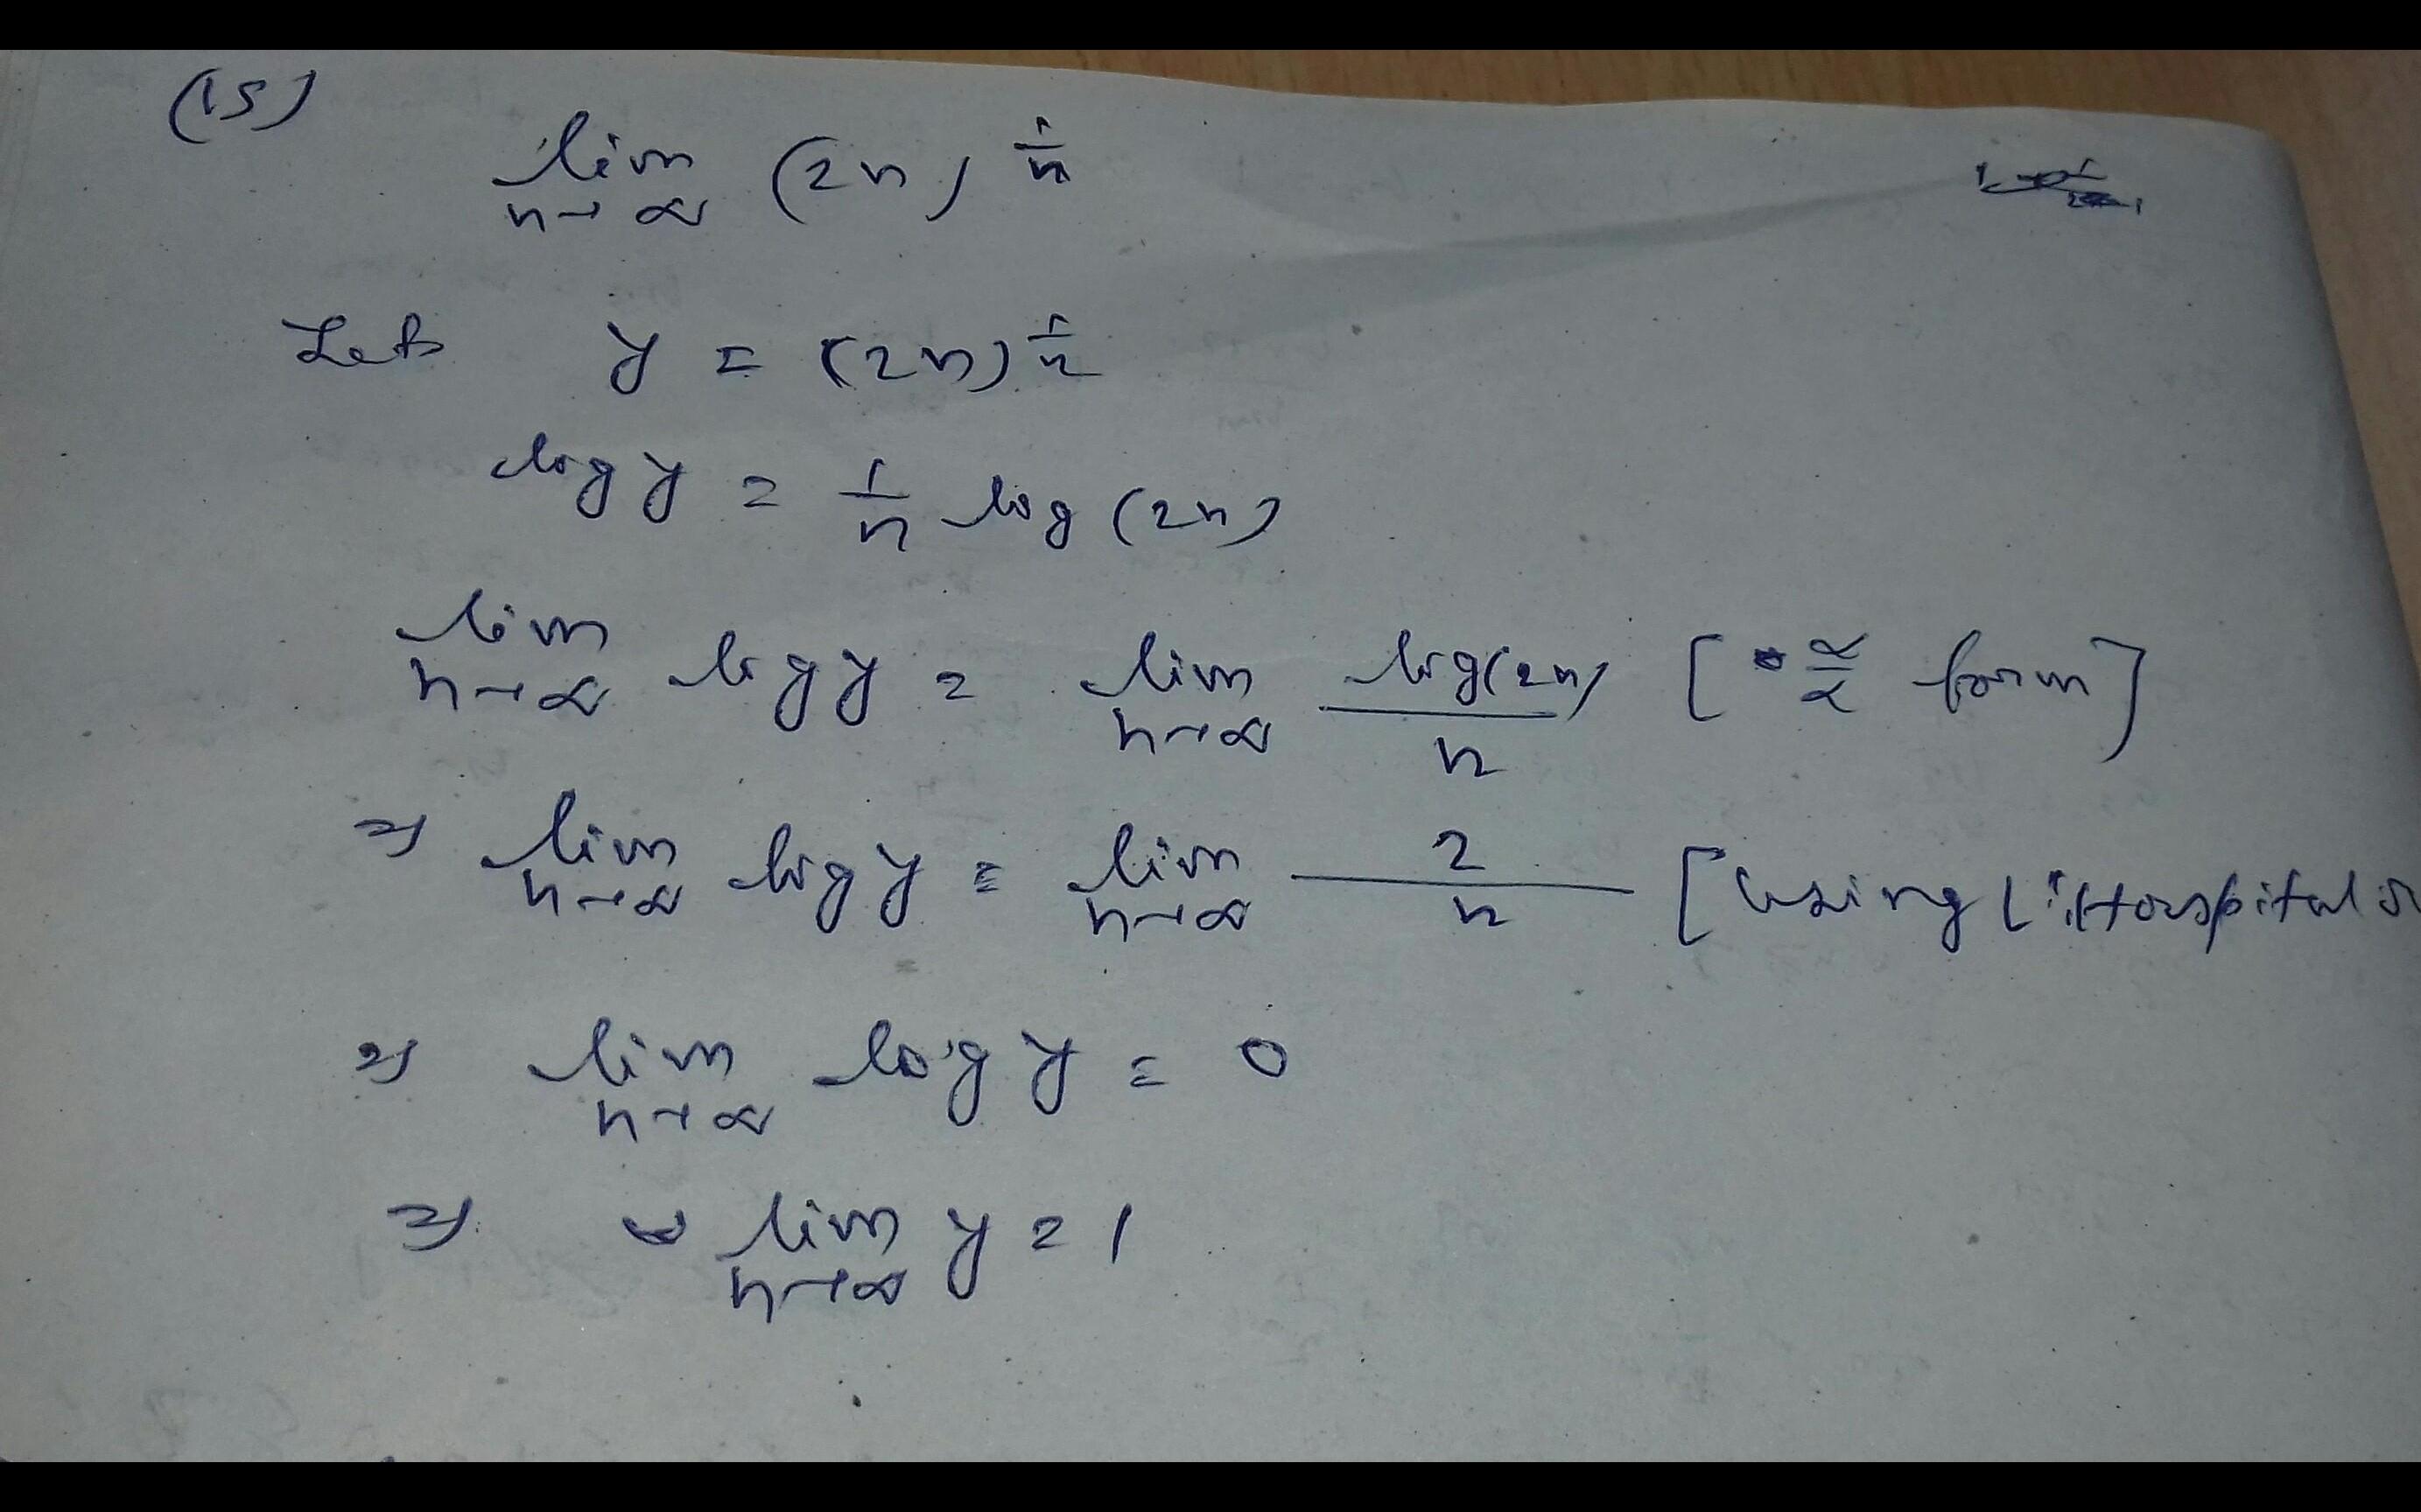 (15)
lim n→∞ (2n)^(1/n)
Let y = (2n)^(1/n)
log y = 1/n log (2n)
lim n→∞ log y = lim n→∞ log(2n)/n [ ∞/∞ form]
⇒ lim n→∞ log y = lim n→∞ 2/n [using L'Hospital
⇒ lim n→∞ log y = 0
⇒ lim n→∞ y = 1